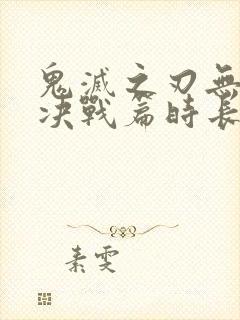 鬼滅之刃無
决戰篇時長
素雯